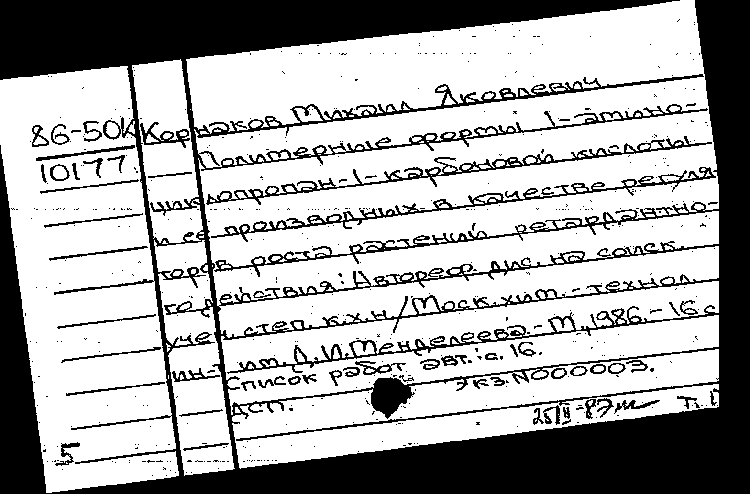 86-50К Корнаков, Михаил Яковлевич
10177
Полимерные формы 1-амино-
циклопропан-1-карбоновой кислоты
и ее производных в качестве регуля-
торов роста растений ретардантно-
го действия: Автореф. дис. на соиск.
учен. степ. к.х.н. / Моск. хим.-технол.
ин-т им. Д. И. Менделеева. - М., 1986. - 16 с
Список работ авт.: с. 16.
Экз. N000003.
ДСП.
5